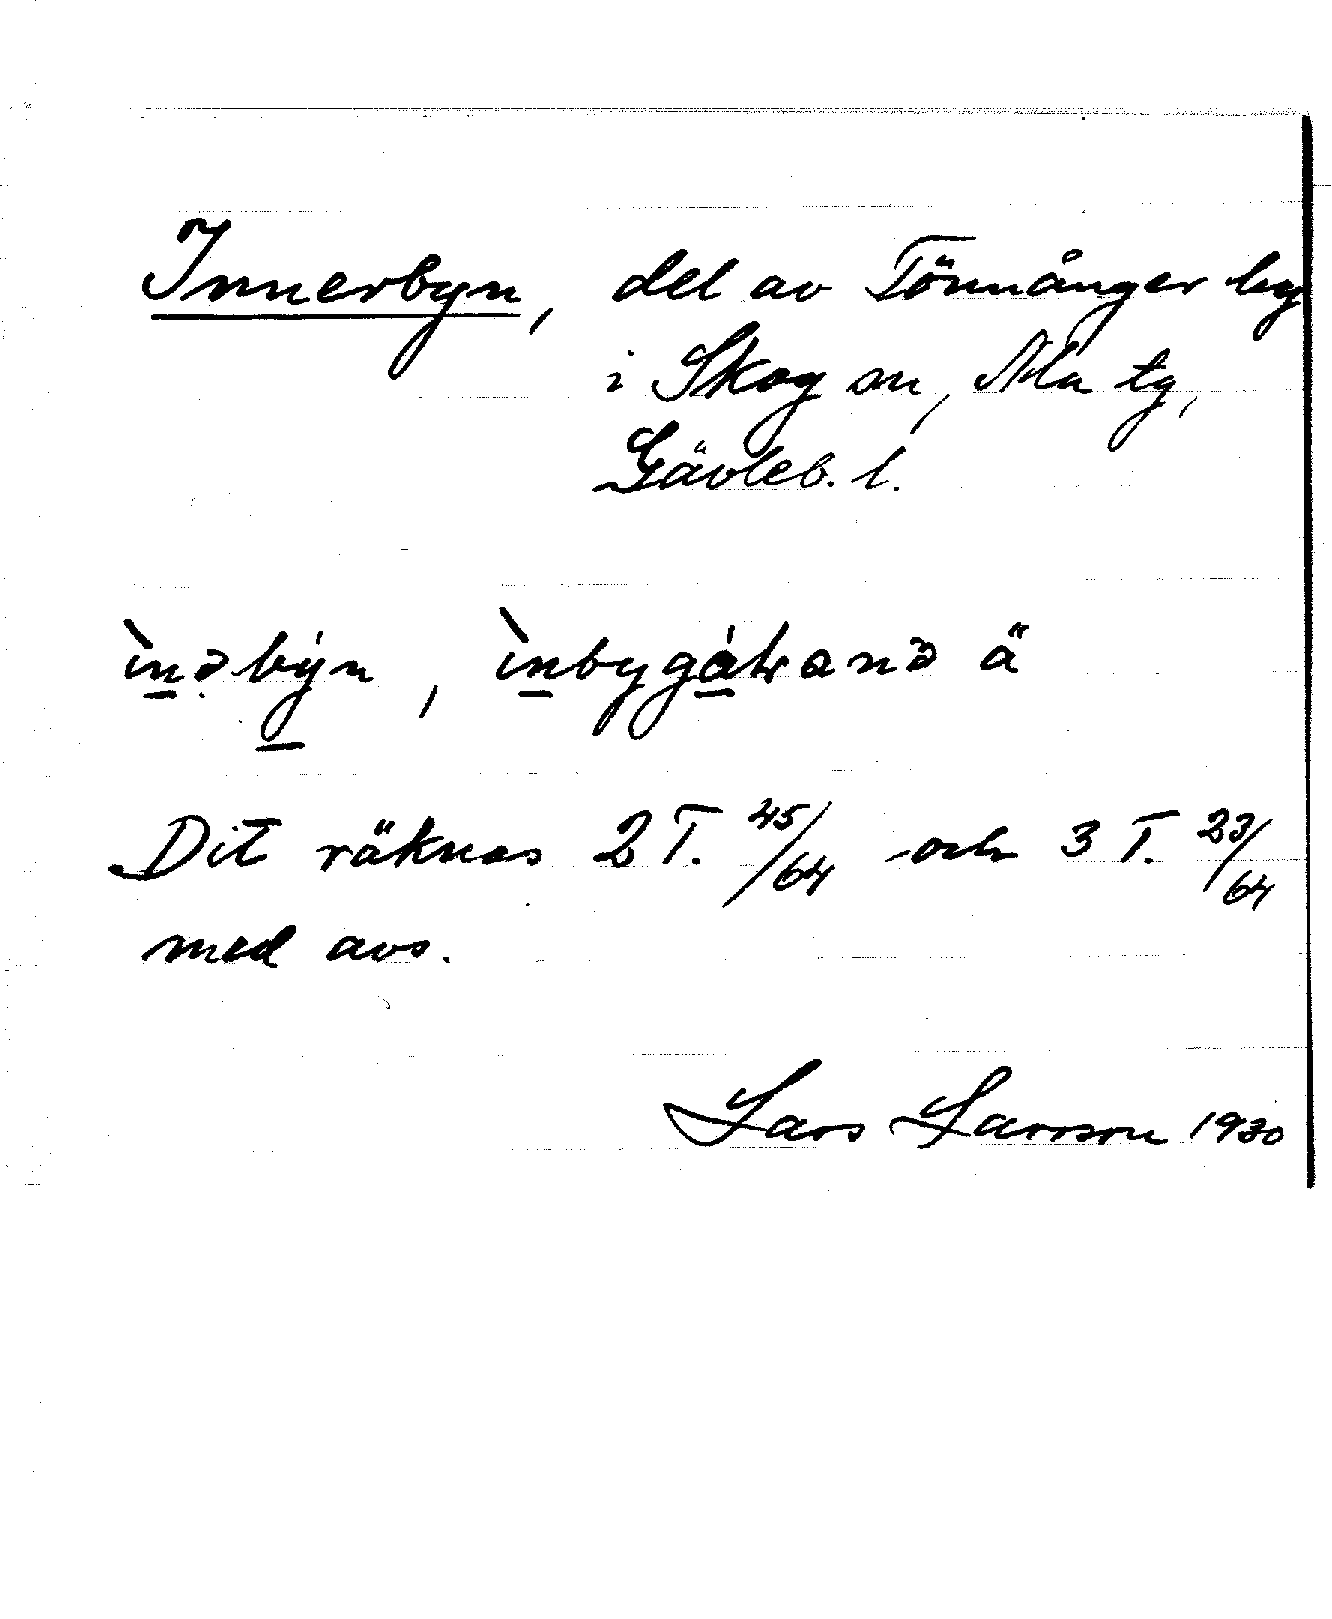 Innerbyn, del av Tönnånger by
i Skog sn, Ala tg,
Gävleb. l.
ìnəbýn, ìnbygá
Dit räknas 2 T. 45/64 och 3 T. 23/64
med avs.
Lars Larsson 1930